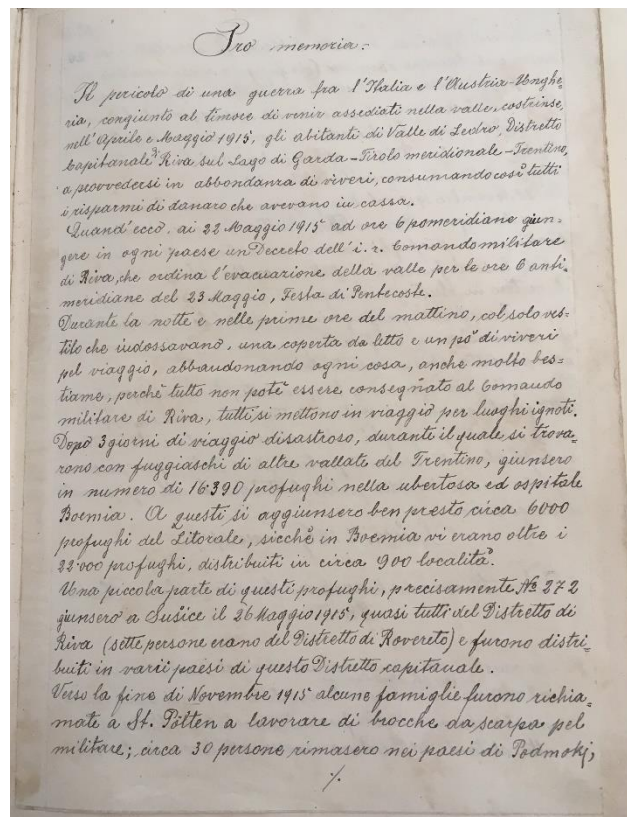 Pro memoria:
Il pericolo di una guerra fra l'Italia e l'Austria-Unghe=
ria, congiunto al timore di venir assediati nella valle, costrinse,
nell'Aprile e Maggio 1915, gli abitanti di Valle di Ledro, Distretto
Capitanale di Riva sul Lago di Garda - Tirolo meridionale - Trentino,
a provvedersi in abbondanza di viveri, consumando così tutti
i risparmi di danaro che avevano in cassa.
Quand'ecco, ai 22 Maggio 1915 ad ore 6 pomeridiane giun=
gere in ogni paese un Decreto dell'i. r. Comando militare
di Riva, che ordina l'evacuazione della valle per le ore 6 anti=
meridiane del 23 Maggio, Festa di Pentecoste.
Durante la notte e nelle prime ore del mattino, col solo ves=
tito che indossavano, una coperta da letto e un pò di viveri
pel viaggio, abbandonando ogni cosa, anche molto bes=
tiame, perchè tutto non potè essere consegnato al Comando
militare di Riva, tutti si mettono in viaggio per luoghi ignoti.
Dopo 3 giorni di viaggio disastroso, durante il quale si trova=
rono con fuggiaschi di altre vallate del Trentino, giunsero
in numero di 16·390 profughi nella ubertosa ed ospitale
Boemia. A questi si aggiunsero ben presto circa 6000
profughi del Litorale, sicchè in Boemia vi erano oltre i
22·000 profughi, distribuiti in circa 900 località.
Una piccola parte di questi profughi, precisamente No 272
giunsero a Sušice il 26 Maggio 1915, quasi tutti del Distretto di
Riva (sette persone erano del Distretto di Rovereto) e furono distri=
buiti in varii paesi di questo Distretto capitanale.
Verso la fine di Novembre 1915 alcune famiglie furono richia=
mate a St. Pötten a lavorare di brocche da scarpa pel
militare; circa 30 persone rimasero nei paesi di Podmokj,
./.